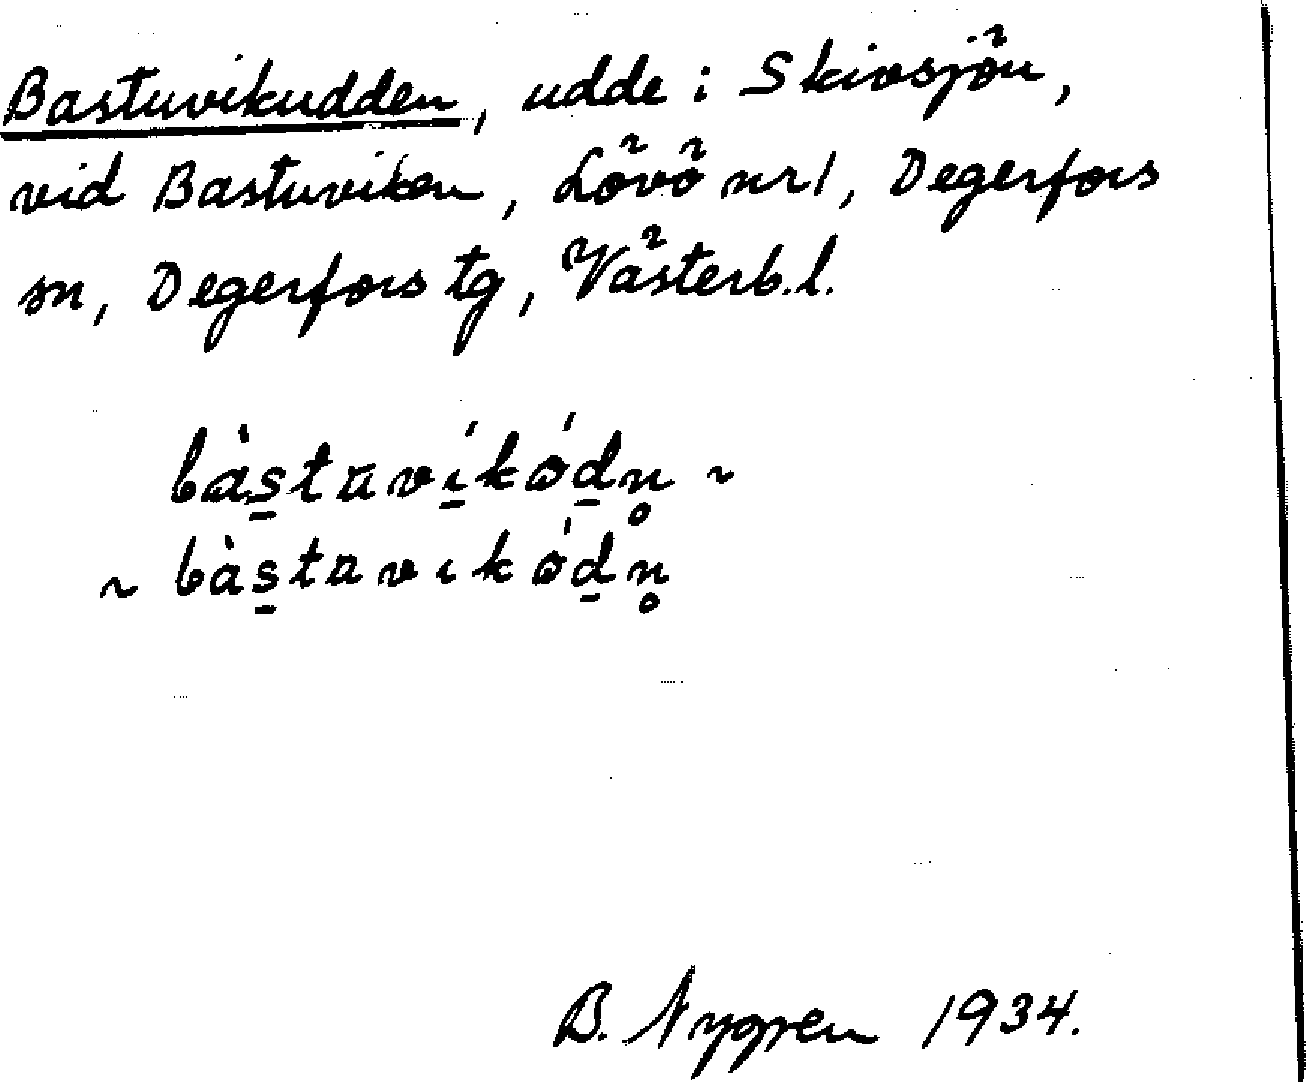 Bastuvikudden, udde i Skivsjön,
vid Bastuviken, Lövö nr 1, Degerfors
sn, Degerfors tg, Västerb.l.
bàs̱tuví̱kóḏn̥ ~
~ bàs̱tuvikóḏn̥
B. Nygren 1934.